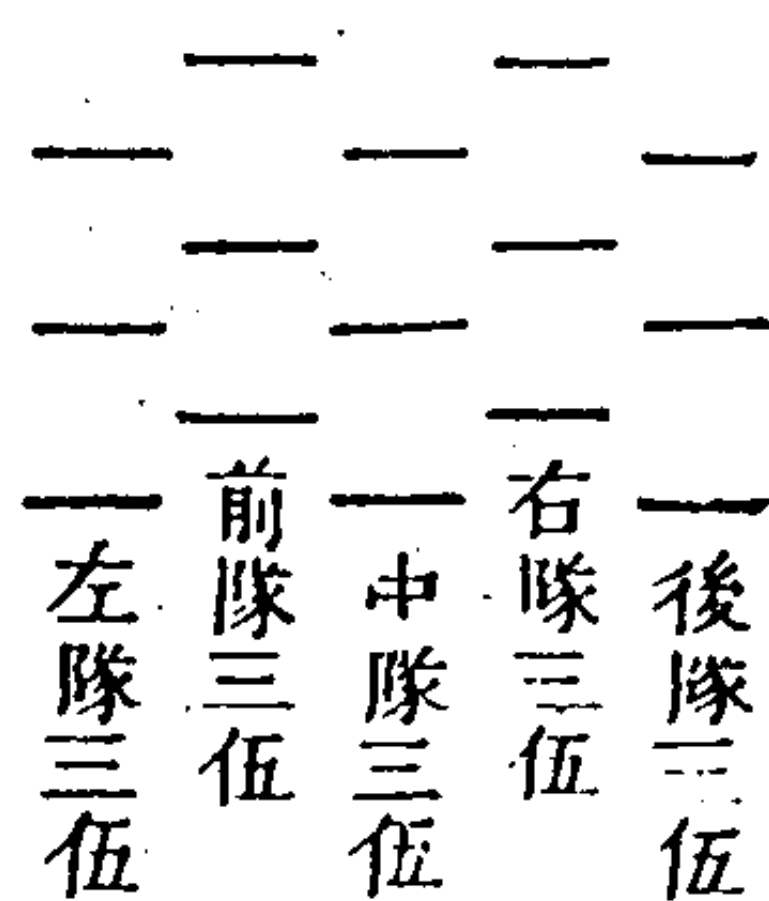 後隊三伍
右隊三伍
中隊三伍
前隊三伍
左隊三伍